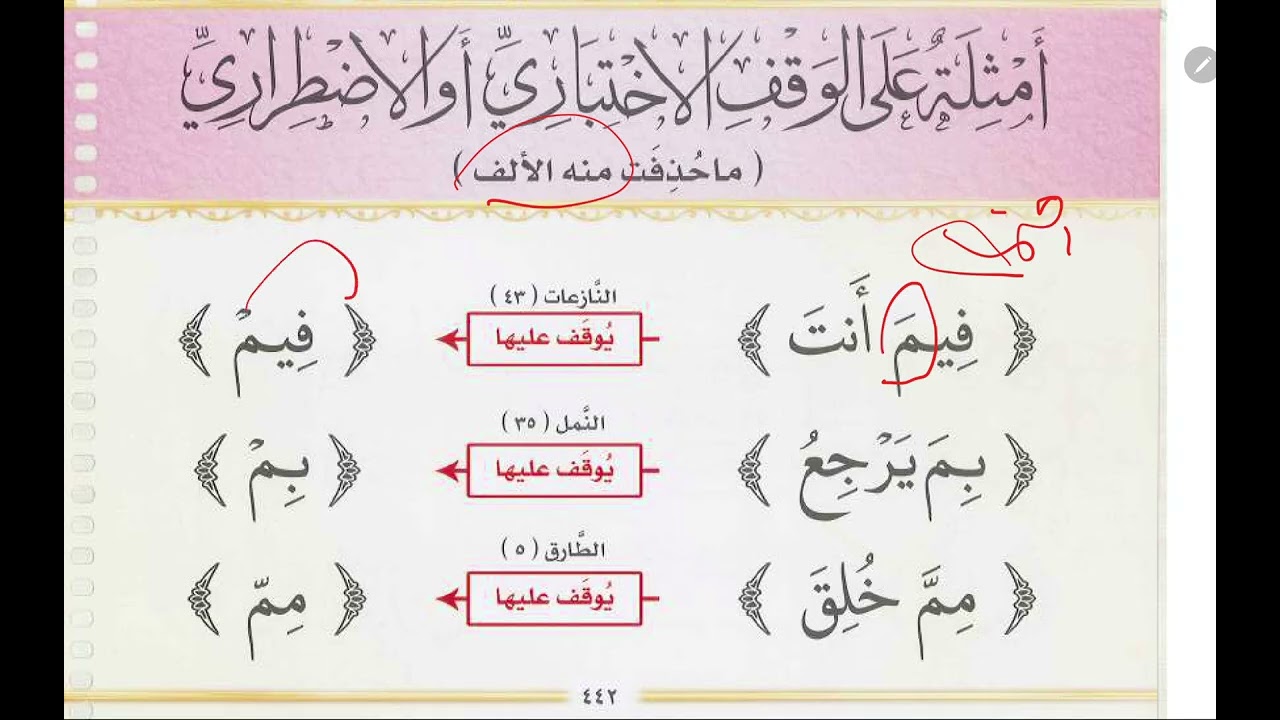 أَمْثِلَةٌ عَلَى الوَقْفِ الاخْتِبَارِيِّ أَوِ الاضْطِرَارِيِّ
( ما حُذِفَت منه الألف )
﴿ فِيمَ أَنتَ ﴾ النَّازعات ( ٤٣ ) يُوقَف عليها ﴿ فِيمْ ﴾
﴿ بِمَ يَرْجِعُ ﴾ النَّمل ( ٣٥ ) يُوقَف عليها ﴿ بِمْ ﴾
﴿ مِمَّ خُلِقَ ﴾ الطَّارق ( ٥ ) يُوقَف عليها ﴿ مِمّ ﴾
٤٤٢